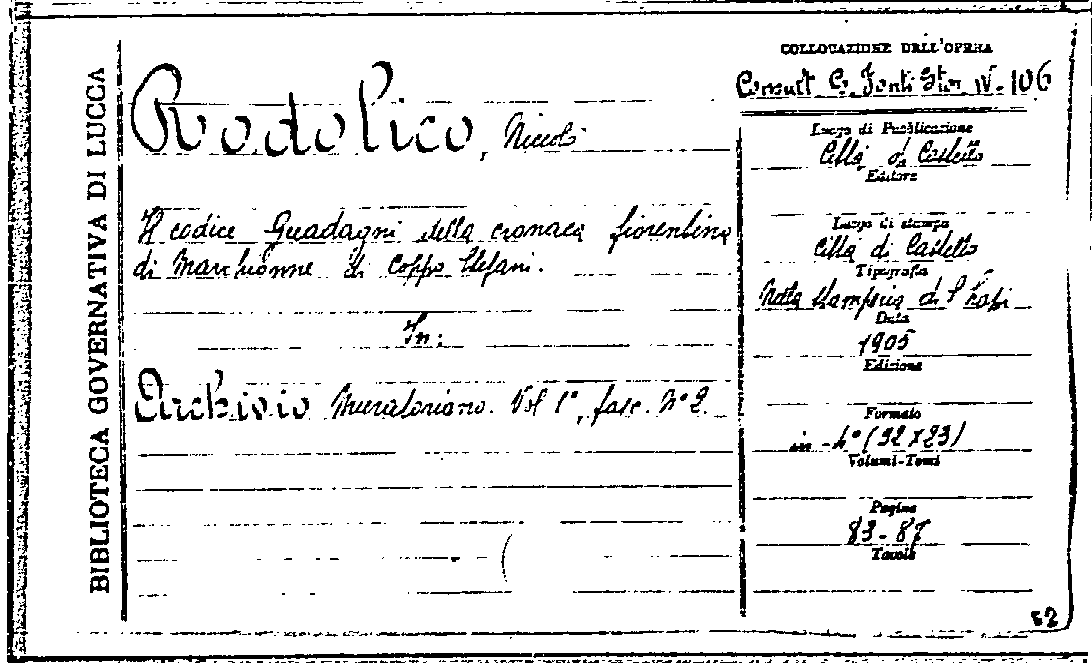 BIBLIOTECA GOVERNATIVA DI LUCCA
Rodolico, Niccolò
Il codice Guadagni della cronaca fiorentina
di Marchionne di Coppo Stefani.
In:
Archivio Muratoriano. Vol 1°, fasc. N° 2.
COLLOCAZIONE DELL'OPERA
Consult. C. Fonti Stor IV - 106
Luogo di Pubblicazione
Città di Castello
Editore
Luogo di stampa
Città di Castello
Tipografia
stamperia di S. Lapi
Data
1905
Edizione
Formato
in -4° (32 x 23)
Volumi-Tomi
Pagine
83-87
Tavole
52